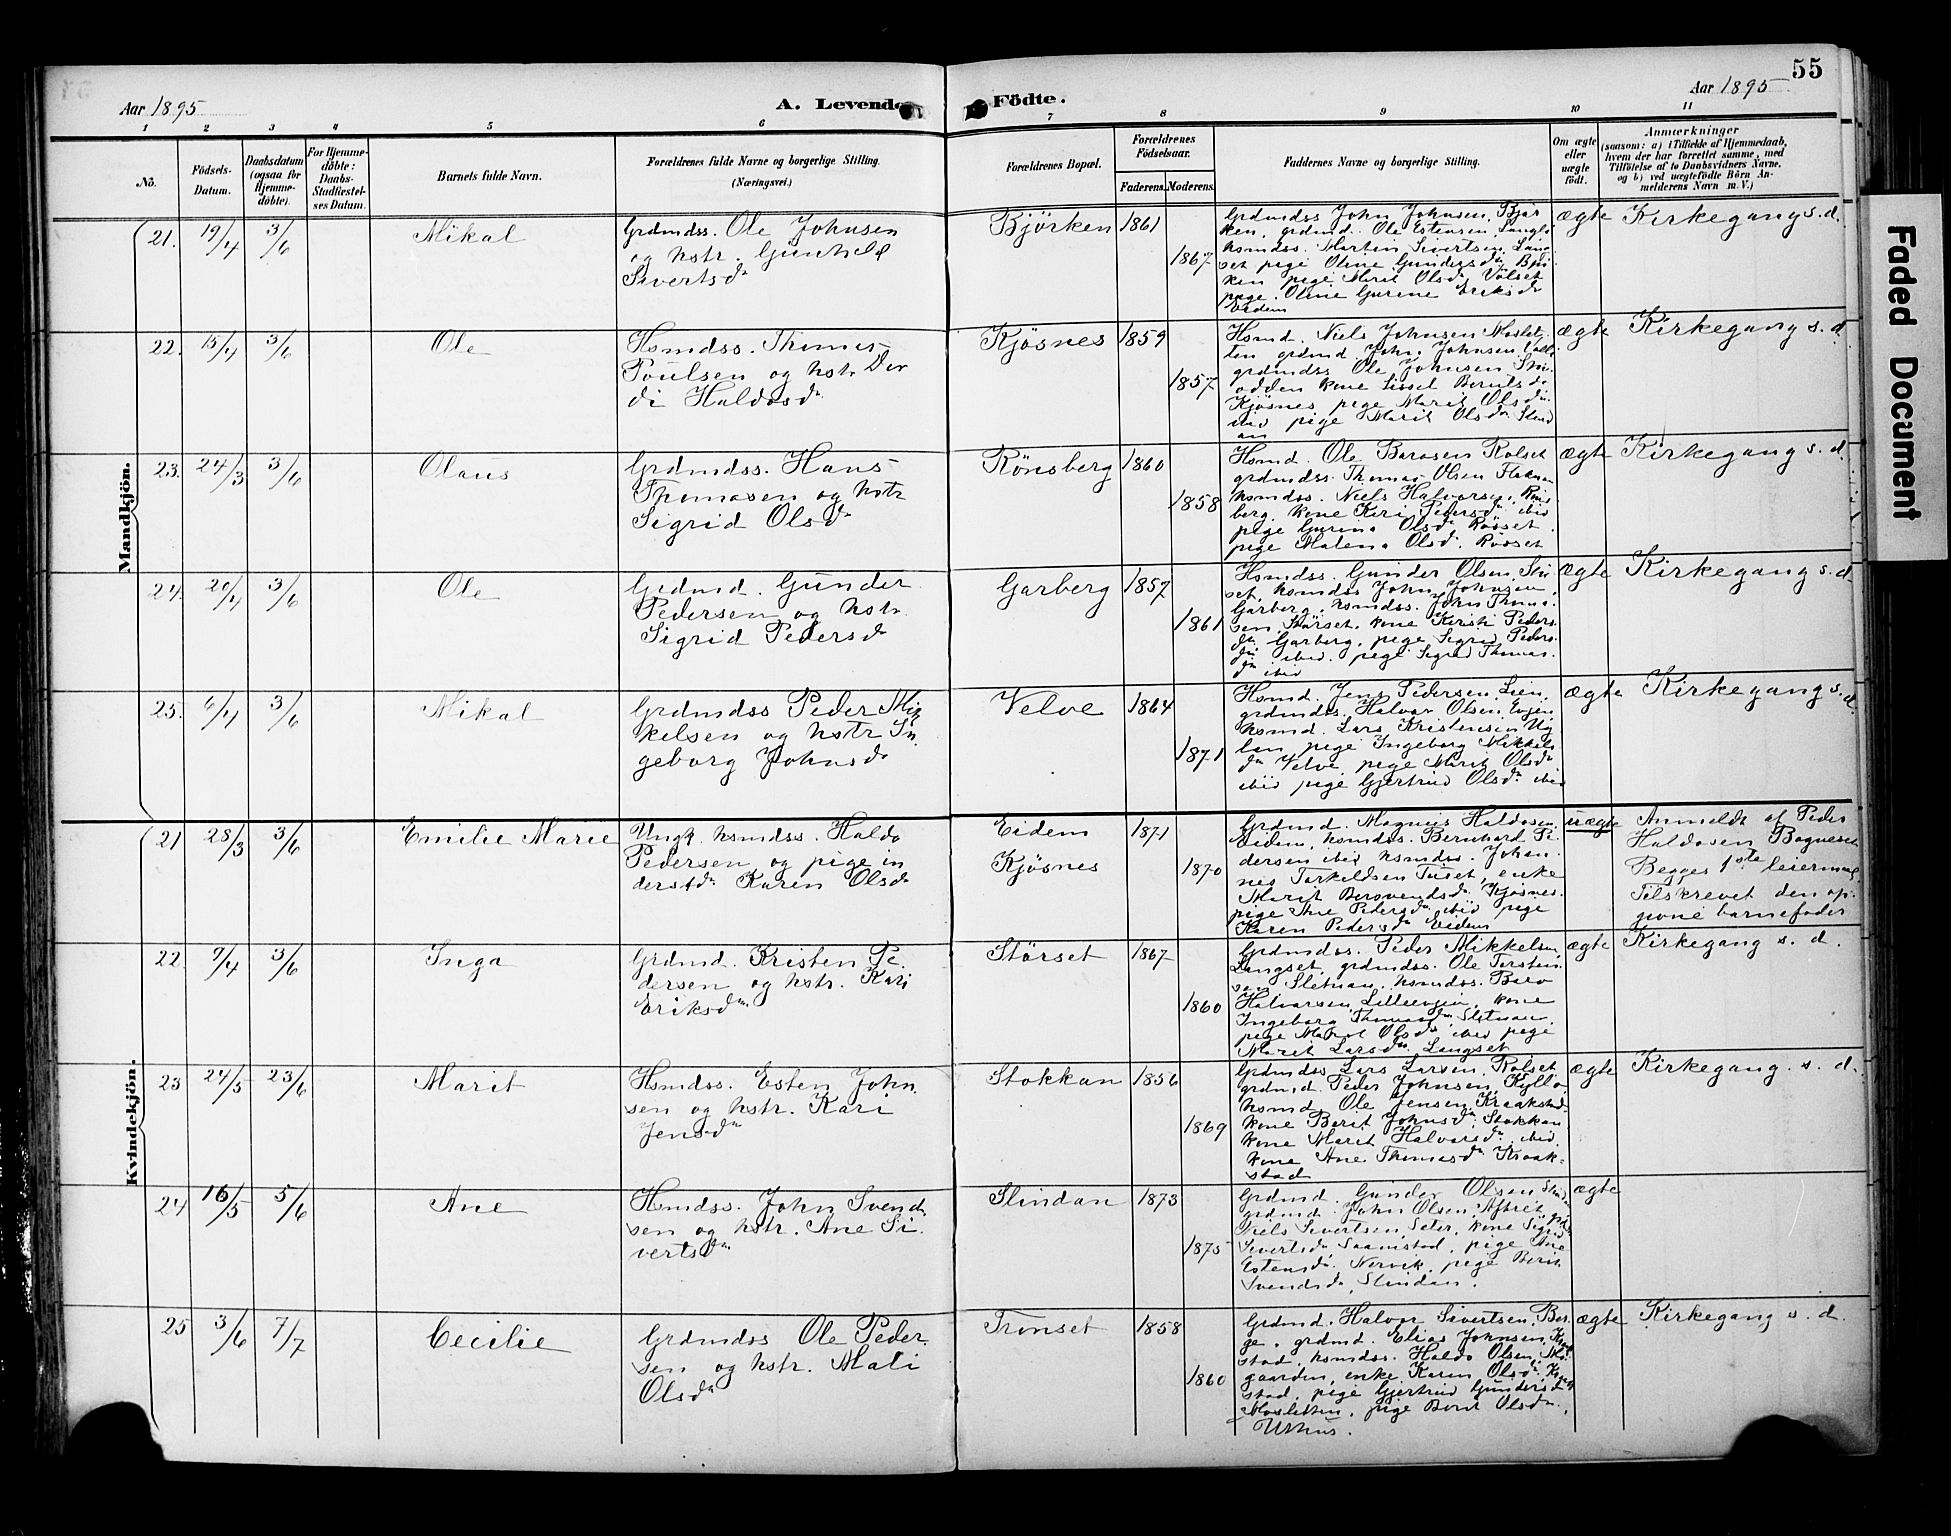 55
Aar 1895
A. Levende Födte.
Aar 1895
1 2 3 4 5 6 7 8 9 10 11
No.
Födsels-Datum.
Daabsdatum (ogsaa for Hjemme-döbte).
For Hjemme-döbte: Daabs-Stadfæstel-ses Datum.
Barnets fulde Navn.
Forældrenes fulde Navne og borgerlige Stilling.
(Næringsvei.)
Forældrenes Bopæl.
Forældrenes Födselsaar.
Faderens. Moderens.
Faddernes Navne og borgerlige Stilling.
Om ægte eller uægte födt.
Anmærkninger
(saasom: a) i Tilfælde af Hjemmedaab,
hvem der har forrettet samme, med
Tilföielse af to Daabsvidners Navne.
og b) ved uægtefödte Börn An-
melderens Navn m. V.)
Mandkjön.
21. 19/4 3/6 Mikal
Grdmdss. Ole Johnsen
og hstr. Gunhild
Sivertsdr
Björken 1861 1867
Grdmdss John Johnsen, Björ
ken, grdmd. Ole Estensen, Langs
hsmdss. Martin Sivertsen, Lang
set pige Oline Gundersdr, Bjö
ken pige Marit Olsdr Völset
pige. Oline Gurine Eriksdr
Eidem
ægte Kirkegang s. d.
22. 15/4 3/6 Ole
Hsmdss. Thomas
Poulsen og hstr. Dor
di Haldosdr
Kjösnes 1859 1857
Hsmd. Niels Johnsen Moslet
ten grdmd. John Johnsen
grdmdss Ole Johnsen
odden kone Sissel Berntsdr
Kjösnes pige Marit Olsdr
ibid pige Marit Olsdr Slind
an
ægte Kirkegang s. d.
23. 24/3 3/6 Olaus
Grdmdss. Hans
Thomasen og hstr
Sigrid Olsdr
Rönsberg 1860 1858
Hsmd. Ole Barosen Rolset
grdmdss. Thomas Olsen Flaknan
hsmdss. Niels Halvorsen, Röns
berg, kone Kari Pedersdr ibid
pige Gurina Olsdr Rösset
pige Malena Olsdr. Rösset
ægte Kirkegang s. d.
24. 20/4 3/6 Ole
Grdmd. Gunder
Pedersen og hstr.
Sigrid Pedersdr
Garberg 1857 1861
Hsmdss. Gunder Olsen,
set, hsmdss John Johnsen,
Garberg, hsmdss. John Thoma-
sen Störset, kone Kirsti Peders
dr Garberg, pige Sigrid Peders
dr ibid. pige Sigrid Thomas.
dr ibid
ægte Kirkegang s. d.
25. 6/4 3/6 Mikal
Grdmdss Peder Mik
kelsen og hstr In
geborg Johnsdr
Velve 1864 1871
Hsmd. Jens Pedersen Lien,
grdmdss. Halvor Olsen, Evjen
hsmd. Lars Kristensen Ug
lan, pige Ingeborg Mikkels
dr Velve pige Marit Olsdr
ibid pige Gjertrud Olsdr ibid
ægte Kirkegang s. d.
Kvindekjön.
21 28/3 3/6 Emilie Marie
Ungk. hsmdss. Haldo
Pedersen og pige in
derstdr Karen Olsdr
Eidem
Kjösnes
1871 1870
Grdmd. Magnus Haldosen,
Eidem, hsmdss. Bernhard Pe
dersen ibid hsmdss. Johan-
nes Torkeldsen Tuset, enke
Marit Baroendsdr Kjösnes.
pige Ane Pedersdr ibid pige
Karen Pedersdr Eidem
uægte
Anmeldt af Peder
Haldosen Bogneset
Begges 1ste leiermaal
Tilskrevet den op-
givne barnefader
22. 9/4 3/6 Inga
Grdmd. Kristen Pe-
dersen og hstr. Kari
Eriksdr
Störset 1867 1860
Grdmdss. Peder Mikkelsen,
Langset, grdmdss. Ole Torstein
sen Sletnan, hsmdss. Baro
Halvorsen Lilleevjen, kone
Ingeborg Thomasdr Sletnan
pige Marit Olsdr ibid pige
Marit Larsdr Langset
ægte Kirkegang s. d.
23 24/5 23/6 Marit
Hsmdss. Esten John
sen og hstr. Kari
Jensdr
Stokkan 1856 1869
Grdmdss Lars Larsen, Rolset
grdmd. Peder Johnsen, Kyllo
hsmd Ole Jensen Kraakstad-
kone Berit Johnsdr. Stokkan
kone Marit Halvorsdr. ibid
kone Ane Thomasdr Kraak-
stad
ægte Kirkegang. s. d.
24 16/5 5/6 Ane
Hsmdss. John Svend
sen og hstr. Ane Si
vertsdr
Slindan 1873 1875
Grdmd. Gunder Olsen
grdmd. John Olsen, Aftret
Niels Sivertsen, Seter, kone Sigrid
Sivertsdr Saamstad, pige Ane
Estensdr. Nervik, pige Berit
Svendsdr, Slindan.
ægte
25 3/6 7/7 Cecilie
Grdmdss Ole Peder
sen og hstr. Mali
Olsdr
Trönset 1858 1860
Grdmd. Halvor Sivertsen, Ber
ge, grdmd. Elias Johnsen,
stad, hsmdss. Haldo Olsen, Mo
gaarden, enke Karen Olsdr,
stad, pige Gjertrud Gundersdr
Mosletten, pige Berit Olsdr,
Uthus.
ægte Kirkegang s. d.
Faded Document